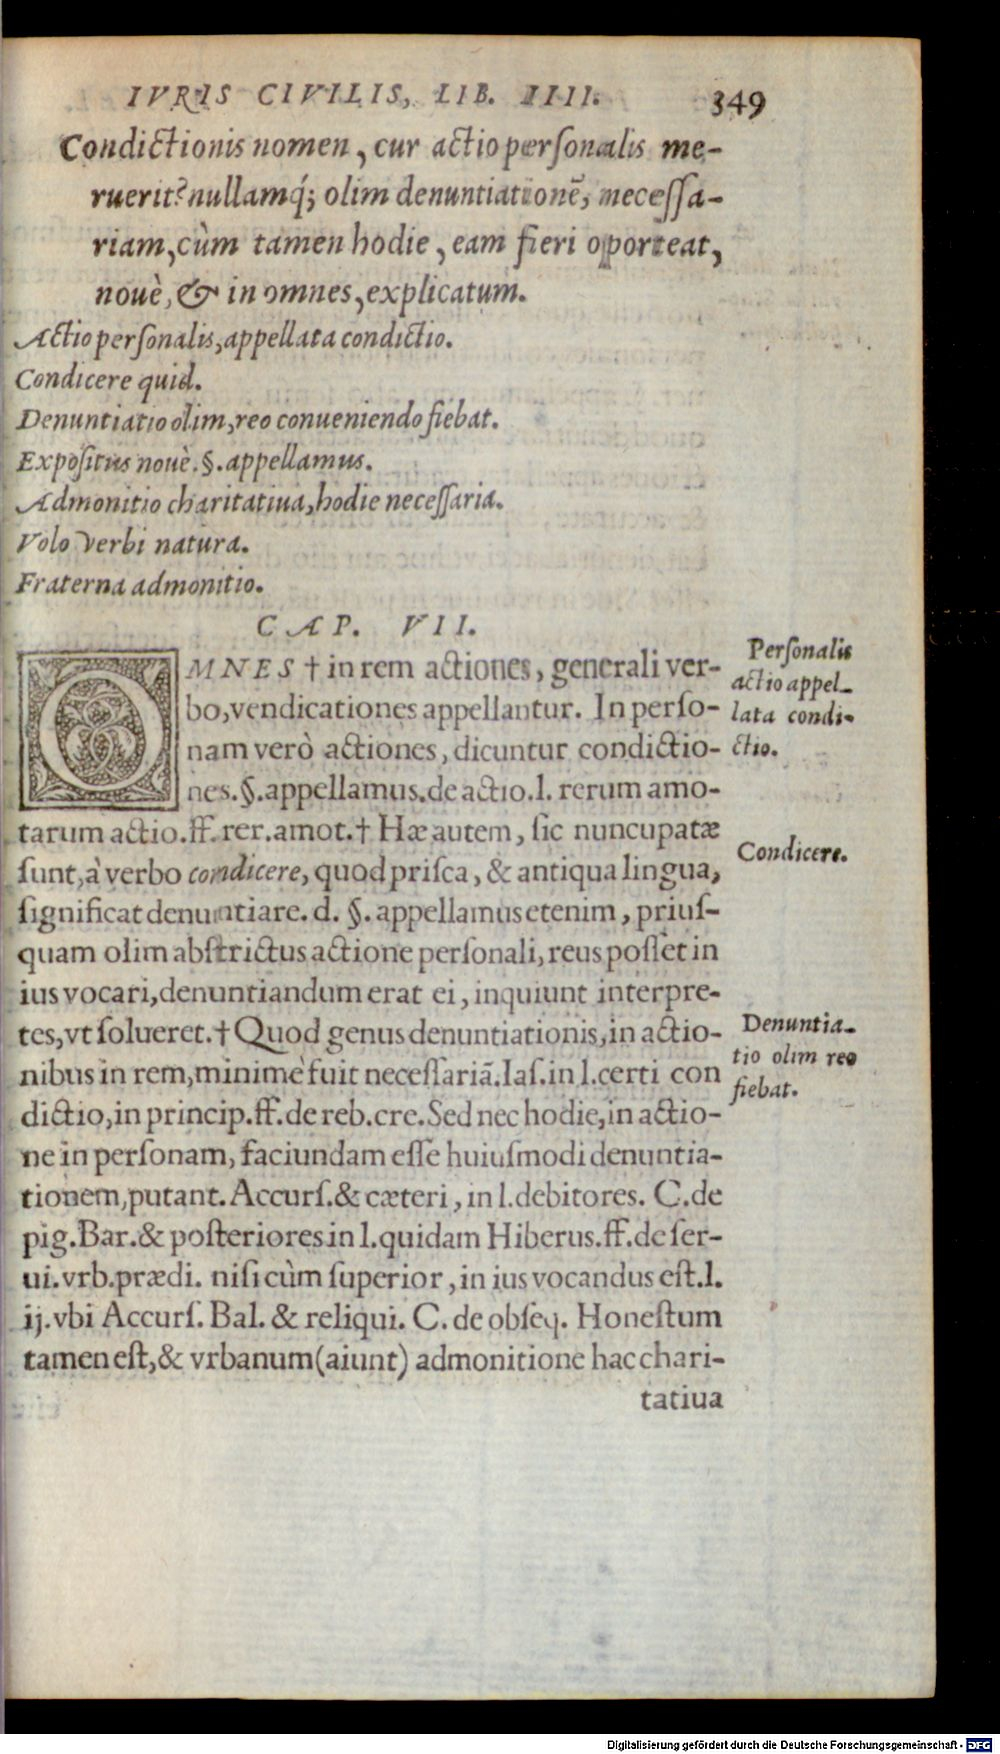 IVRIS CIVILIS, LIB. IIII. 349
Condictionis nomen, cur actio personalis me-
ruerit? nullamq́; olim denuntiationē, necessa-
riam, cùm tamen hodie, eam fieri oporteat,
nouè, & in omnes, explicatum.
Actio personalis, appellata condictio.
Condicere quid.
Denuntiatio olim, reo conueniendo fiebat.
Expositus nouè. §. appellamus.
Admonitio charitatiua, hodie necessaria.
Volo verbi natura.
Fraterna admonitio.
CAP. VII.
OMNES † in rem actiones, generali ver-
bo, vendicationes appellantur. In perso-
nam verò actiones, dicuntur condictio-
nes. §. appellamus. de actio. l. rerum amo-
tarum actio. ff. rer. amot. † Hæ autem, sic nuncupatæ
sunt, à verbo condicere, quod prisca, & antiqua lingua,
significat denuntiare. d. §. appellamus etenim, prius-
quam olim abstrictus actione personali, reus posset in
ius vocari, denuntiandum erat ei, inquiunt interpre-
tes, vt solueret. † Quod genus denuntiationis, in actio-
nibus in rem, minimè fuit necessariā. Ias. in l. certi con
dictio, in princip. ff. de reb. cre. Sed nec hodie, in actio-
ne in personam, faciundam esse huiusmodi denuntia-
tionem, putant. Accurs. & cæteri, in l. debitores. C. de
pig. Bar. & posteriores in l. quidam Hiberus. ff. de ser-
ui. vrb. prædi. nisi cùm superior, in ius vocandus est. l.
ij. vbi Accurs. Bal. & reliqui. C. de obseq. Honestum
tamen est, & vrbanum (aiunt) admonitione hac chari-
tatiua
Personalis
actio appel-
lata condi-
ctio.
Condicere.
Denuntia-
tio olim reo
fiebat.
Digitalisierung gefördert durch die Deutsche Forschungsgemeinschaft - DFG